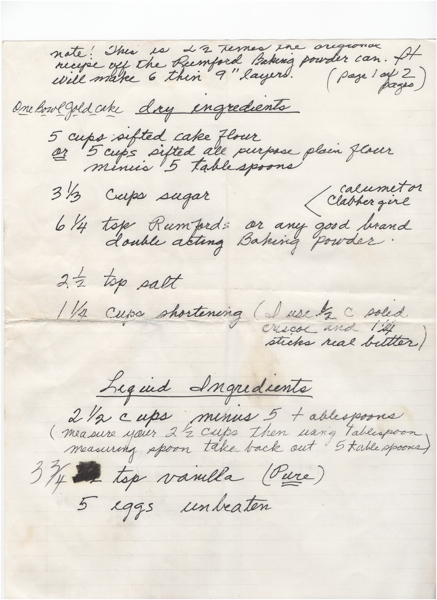 note! This is 2 1/2 times the origional
recipe off the Rumford Baking powder can. It
will make 6 thin 9" layers. (page 1 of 2
pages)
One Bowl Gold cake dry ingredients
5 cups sifted cake flour
or 5 cups sifted all purpose plain flour
minus 5 tablespoons
3 1/3 cups sugar
calumet or
clabbergirl
6 1/4 tsp Rumfords or any good brand
double acting Baking Powder.
2 1/2 tsp salt
1 1/4 cups shortening (I use 1/2 c solid
criscoe and 1 1/4
sticks real butter)
Liquid Ingredients
2 1/2 cups minus 5 tablespoons
(measure your 2 1/2 cups then using Tablespoon
measuring spoon take back out 5 tablespoons)
3 3/4 tsp vanilla (Pure)
5 eggs unbeaten